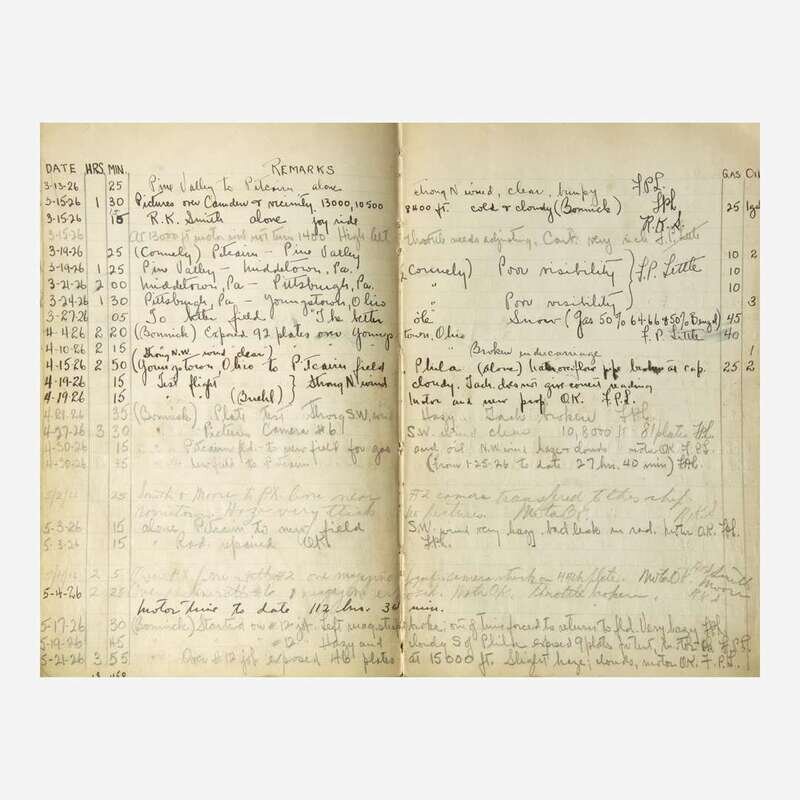 DATE HRS. MIN. REMARKS GAS OIL
3-13-26 25 Pine Valley to Pitcairn, alone strong N wind, clear, bumpy F.P.L.
3-15-26 1 30 Pictures over Camden & vicinity. 13000, 10500 8400 ft. cold & cloudy (Bonnick) 25
3-15-26 15 R.K. Smith alone joy ride R.K.S.
3-15-26 At 13000 ft motor just not turn 1400 High Throttle needs adjusting, Carb. very rich F.P. Little
3-19-26 25 (Connely) Pitcairn - Pine Valley 10 2
3-19-26 1 25 Pine Valley - Middletown, Pa. (Connely) Poor visibility F.P. Little 10
3-21-26 2 00 Middletown, Pa - Pittsburgh, Pa. " 10
3-24-26 1 30 Pittsburgh, Pa - Youngstown, Ohio " Poor visibility 3
3-27-26 05 To better field "The better ole" Snow (Gas 50% 50% Benzol) 45
4-4-26 2 20 (Bonnick) Exposed 92 plates over Youngstown, Ohio F.P. Little 40
4-10-26 2 15 " Broken undercarriage 1
(Strong N.W. wind clear)
4-15-26 2 50 Youngstown, Ohio to Pitcairn field Phila (alone) broken at cap. 25 2
4-19-26 15 Test flight Strong N wind cloudy. Tach. does not give correct reading
4-19-26 15 " (Buehl) Motor and new prop. OK. F.P.L.
4-21-26 35 (Bonnick) Plate test Strong S.W. wind Hazy. Tach broken
4-27-26 3 30 " Pictures Camera #6 S.W. wind clear 10,8000 ft 81 plates
4-30-26 15 " Pitcairn fld. to new field for gas and oil. N.W. wind haze & clouds motor OK F.P.L.
4-30-26 15 " New field to Pitcairn (from 1-25-26 to date 27 hrs. 40 min)
5/2/26 25 Smith & Moore to near Haze very thick #2 camera transferred to this ship. no pictures. Motor OK R.K.S
5-3-26 15 alone, Pitcairn to new field S.W. wind very hazy, bad leak in rad. motor O.K.
5-3-26 15 " Rad. repaired OK.
2 5 #2 one magazine camera stuck on 45th plate. Motor OK Smith Moore
5-4-26 2 25 magazine Motor OK. Throttle broken. R.K.S
Motor time to date 112 hrs. 30 min.
5-17-26 30 (Bonnick) Started on #12 job. Left magneto broke, out of time forced to return to fld. Very hazy
5-19-26 45 " #12 Hazy and cloudy S of Phila exposed 9 plates motor OK F.P.L.
5-21-26 3 55 " Over #12 job exposed 46 plates at 15000 ft. Slight haze, clouds, motor OK. F.P.L.